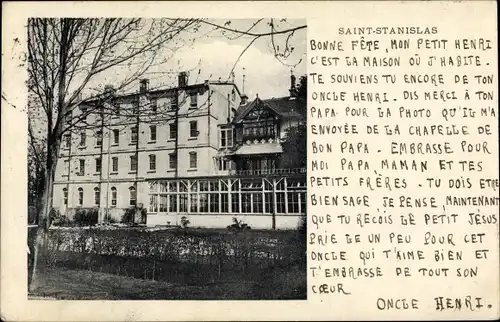 SAINT-STANISLAS
BONNE FÊTE, MON PETIT HENRI
C'EST LA MAISON OÙ J'HABITE.
TE SOUVIENS TU ENCORE DE TON
ONCLE HENRI. DIS MERCI À TON
PAPA POUR LA PHOTO QU'IL M'A
ENVOYÉE DE LA CHAPELLE DE
BON PAPA. EMBRASSE POUR
MOI PAPA, MAMAN ET TES
PETITS FRÈRES. TU DOIS ETRE
BIEN SAGE, JE PENSE, MAINTENANT
QUE TU REÇOIS LE PETIT JÉSUS
PRIE LE UN PEU POUR CET
ONCLE QUI T'AIME BIEN ET
T'EMBRASSE DE TOUT SON
CŒUR
ONCLE HENRI.